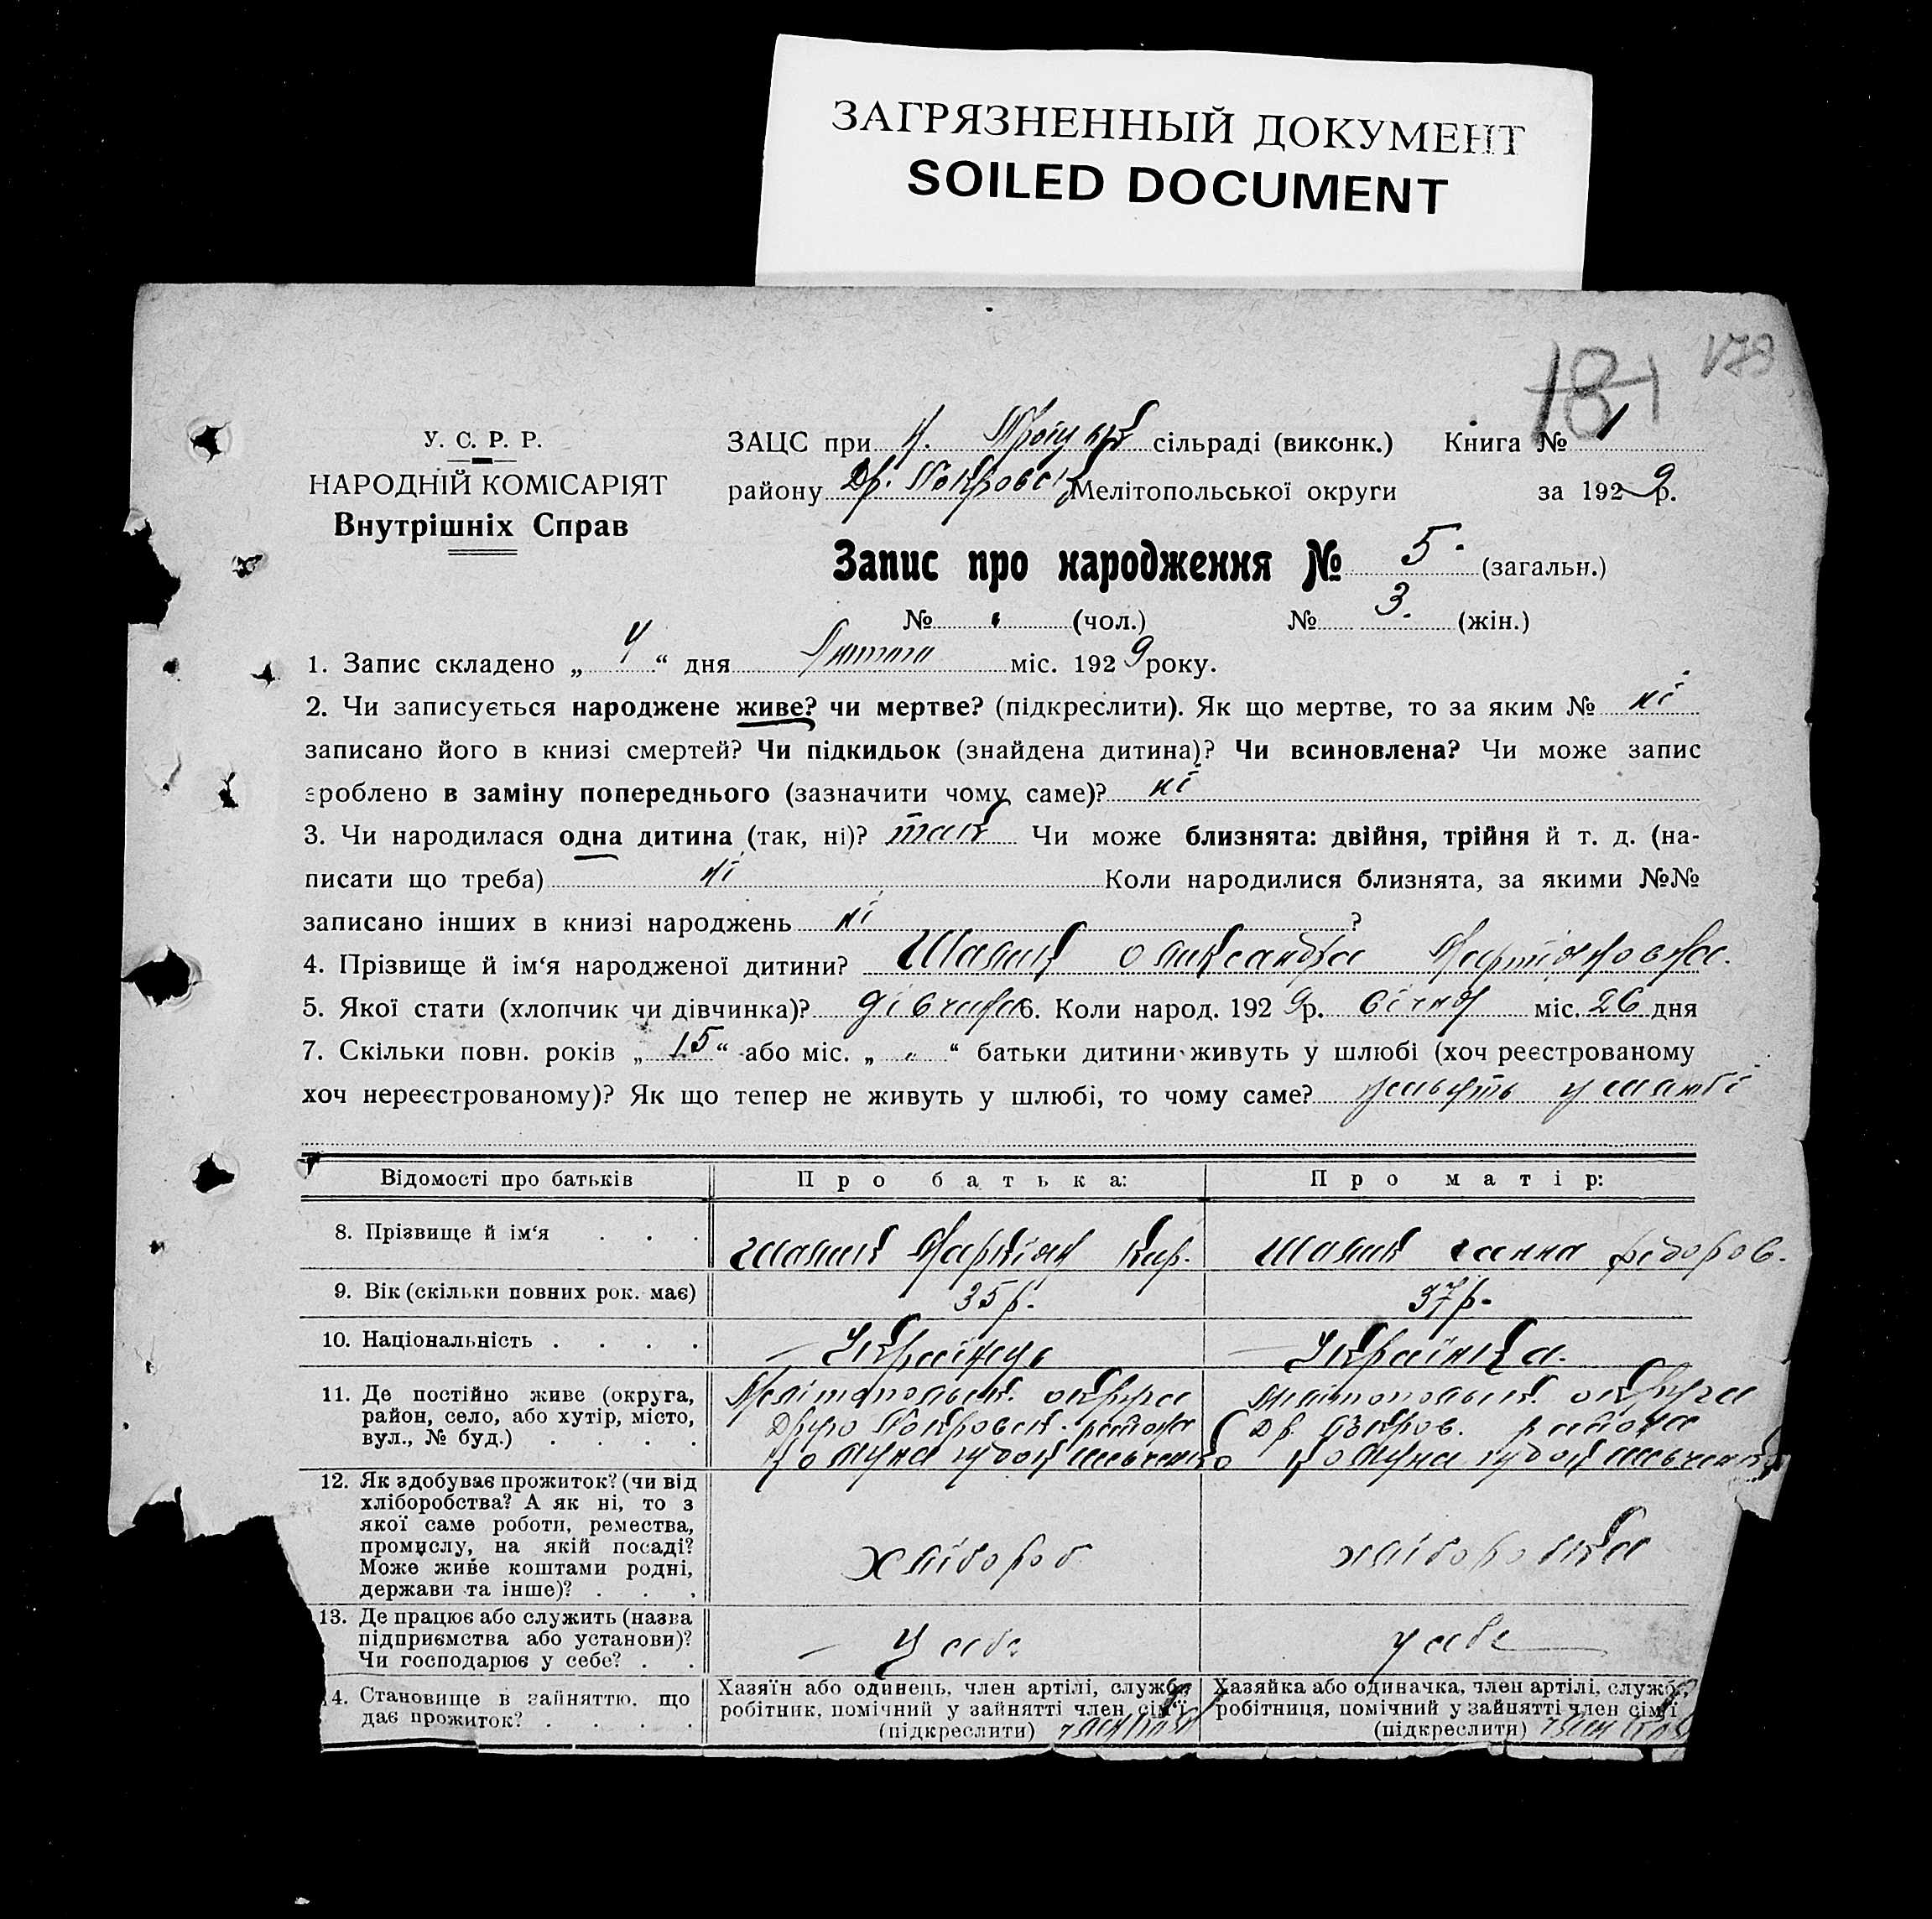 ЗАГРЯЗНЕННЫЙ ДОКУМЕНТ
SOILED DOCUMENT
181 178
У. С. Р. Р.
НАРОДНІЙ КОМІСАРІЯТ
Внутрішніх Справ
ЗАЦС при Н. Троицкій сільраді (виконк.) Книга № 1
району Др. Покровськ Мелітопольської округи за 1929 р.
Запис про народження № 5. (загальн.)
№ " (чол.) № 3. (жін.)
1. Запис складено „ 4 “ дня Лютого міс. 1929 року.
2. Чи записується народжене живе? чи мертве? (підкреслити). Як що мертве, то за яким № ні
записано його в книзі смертей? Чи підкидьок (знайдена дитина)? Чи всиновлена? Чи може запис
зроблено в заміну попереднього (зазначити чому саме)? ні
3. Чи народилася одна дитина (так, ні)? так Чи може близнята: двійня, трійня й т. д. (на-
писати що треба) ні Коли народилися близнята, за якими №№
записано інших в книзі народжень ні ?
4. Прізвище й ім‘я народженої дитини? Шалик Олександра
5. Якої стати (хлопчик чи дівчинка)? дівчина 6. Коли народ. 1929 р. січня міс. 26 дня
7. Скільки повн. років „ 15 “ або міс. „ " “ батьки дитини живуть у шлюбі (хоч реєстрованому
хоч нереєстрованому)? Як що тепер не живуть у шлюбі, то чому саме? живуть у шлюбі
Відомості про батьків Про батька: Про матір:
8. Прізвище й ім‘я . . . Шалик Кир. Шалик Ганна Федоров.
9. Вік (скільки повних рок. має) 35 р. 37 р.
10. Національність . . . . Українець Українка.
11. Де постійно живе (округа, Мелітопольськ. округа Мелітопольськ. округа
район, село, або хутір, місто, Друго Покровськ. района Др. Покров. района
вул., № буд.) . . . . Комуна Шевченко Комуна Шевченко
12. Як здобуває прожиток? (чи від
хліборобства? А як ні, то з
якої саме роботи, ремества,
промислу, на якій посаді? хлібороб хліборобка
Може живе коштами родні,
держави та інше)? . . .
13. Де працює або служить (назва
підприємства або установи)? У себе у себе
Чи господарює у себе? . .
14. Становище в зайняттю, що Хазяїн або одинець, член артілі, службов. Хазяйка або одиначка, член артілі, службов.
дає прожиток? . . . . робітник, помічний у зайнятті член сім‘ї робітниця, помічний у зайнятті член сім‘ї
(підкреслити) член (підкреслити) член